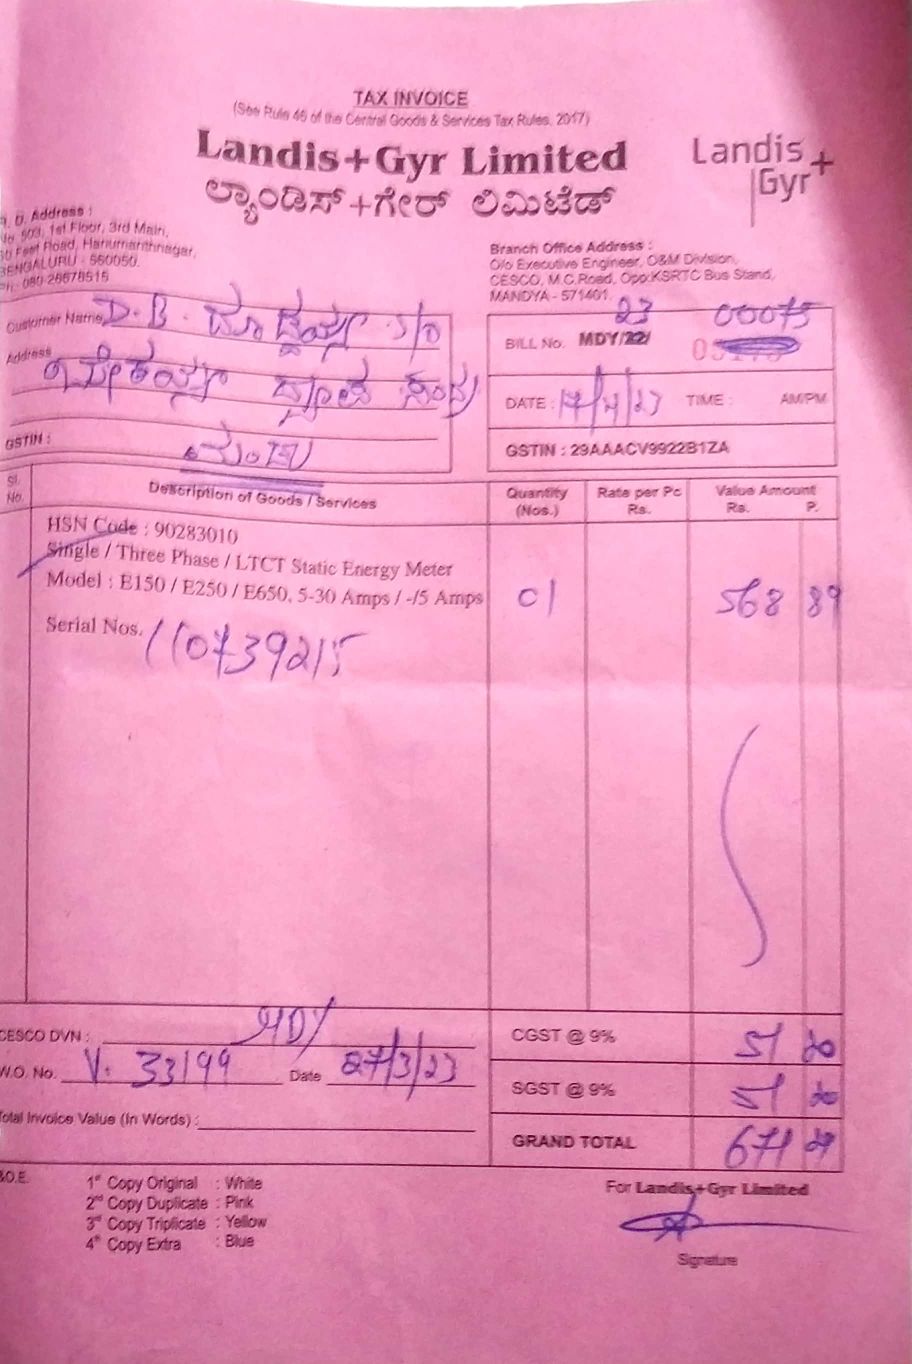 TAX INVOICE
(See Rule 46 of the Central Goods & Services Tax Rules, 2017)
Landis+Gyr Limited
ಲ್ಯಾಂಡಿಸ್+ಗೇರ್ ಲಿಮಿಟೆಡ್
Landis+
Gyr
Address :
503, 1st Floor, 3rd Main,
Feet Road, Hanumanthnagar,
BENGALURU - 560050.
Ph: 080-26678515
Branch Office Address :
O/o Executive Engineer, O&M Division,
CESCO, M.C.Road, Opp:KSRTC Bus Stand,
MANDYA - 571401.
Customer Name D.B. S/o
Address
GSTIN :
23 00075
BILL No. MDY/22/
DATE : 17/4/23 TIME : AM/PM
GSTIN : 29AAACV9922B1ZA
Sl. No. Description of Goods / Services Quantity (Nos.) Rate per Pc Rs. Value Amount Rs. P.
HSN Code : 90283010
Single / Three Phase / LTCT Static Energy Meter
Model : E150 / E250 / E650, 5-30 Amps / -/5 Amps 01 568 89
Serial Nos. 110739215
CESCO DVN : MDY
W.O. No. V. 33199 Date 27/3/23
Total Invoice Value (In Words) :
CGST @ 9% 51 20
SGST @ 9% 51 20
GRAND TOTAL 671 29
&O.E.
1st Copy Original : White
2nd Copy Duplicate : Pink
3rd Copy Triplicate : Yellow
4th Copy Extra : Blue
For Landis+Gyr Limited
Signature